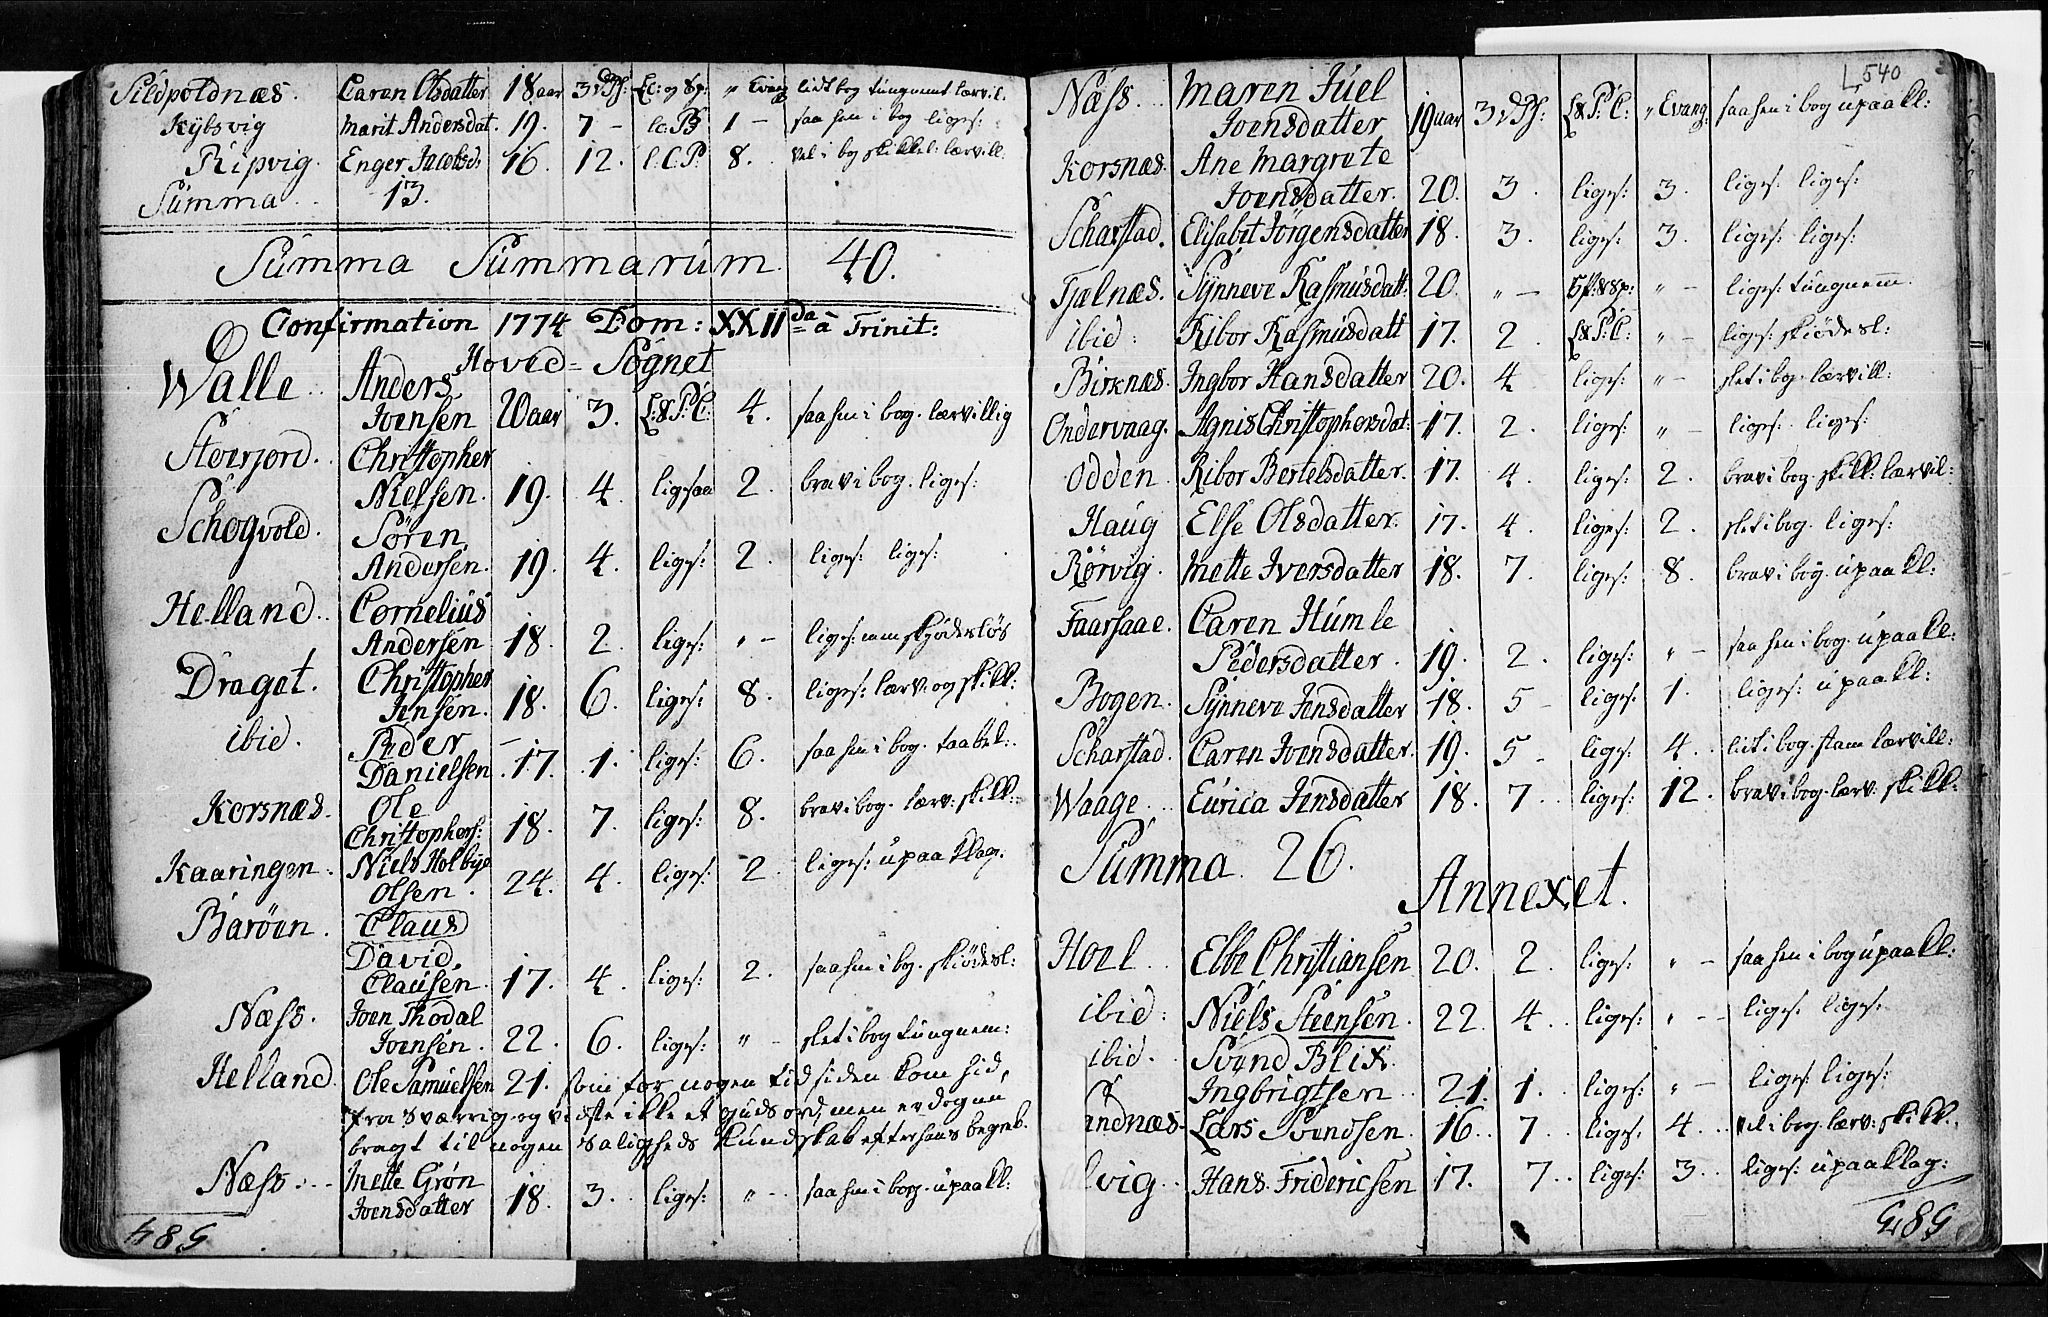 Sildpoldnæs. Caren Olsdatter 18 aar 3 v Ps: L: C: og Sp: „ Evang lidt bog tungnemt lærvil.
Kybsvig Marit Andersdat. 19. 7 – l c P 1 – saa hen i bog liges:
Ripvig. Enger Jacobsd. 16 12. l. C. P 8. vel i bog skikkel: lærvill.
Summa. 13.
Summa Summarum 40.
Confirmation 1774 Dom: XXII da à Trinit:
Hoved=Sognet
Walle Anders
Joensen 20 aar 3. L: & P: C: 4. saa hen i bog. lærvillig
Stoerjord. Christopher
Nielsen. 19. 4. ligesaa 2. brav i bog. liges:
Schogvold. Sören
Andersen. 19. 4. liges: 2. liges: liges:
Helland. Cornelius
Andersen. 18. 2. liges: „ – liges: men skjødesløs
Draget. Christopher
Jensen. 18. 6. liges: 8. liges: lærv. og skikk:
ibid. Peder
Danielsen. 17. 1. liges: 6. saa hen i bog. taabel:
Korsnæs. Ole
Christophers: 18. 7. liges: 8. brav i bog. lærv. skikk:
Kaaringen. Niels Holbye
Olsen. 24. 4. liges: 2. liges: upaaklag:
Baröen. Claus
David
Clausen. 17. 4. liges: 2. saa hen i bog. skiødesl:
Næss. Joen Thodal
Joensen. 22. 6. liges: „ – slet i bog tungnem:
Helland. Ole Samuelsen 21. som for nogen tid siden kom hid,
fra Sværrig og vidste ikke et guds ord, men er dog nu
bragt til nogen Saligheds Kundskab efter hans begreb.
Næss. Mette Grøn
Joensdatter 18. 3. liges: „ – saa hen i bog. upaakl:
489
540
Næss. Maren Juel
Joensdatter 19 aar 3 v Ps: L & P: C: „ Evang: saa hen i bog upaakl:
Korsnæs. Ane Margrete
Joensdatter. 20. 3. liges: 3. liges: liges:
Scharstad. Elisabet Jörgensdatter 18. 3. liges: 3. liges: liges:
Tjælnæs. Synneve Rasmusdatt: 20. „ – „ – liges: tungnem.
ibid: Ribor Rasmusdatt 17. 2. L & P: C: „ – liges: skiødesl:
Birknæs. Ingbor Hansdatter 20. 4. liges: „ – slet i bog. lærvill:
Ondervaag. Agnis Christophersdat: 17. 2. liges: „ – liges: liges:
Odden. Ribor Bertelsdatter. 17. 4. liges: 2. brav i bog. skikk: lærvil:
Haug Else Olsdatter. 17. 4. liges: 2. slet i bog. liges:
Rørvig. Mette Iversdatter 18. 7. liges: 8. brav i bog. upaakl:
Faarsaae. Caren Humle
Pedersdatter. 19. 2. liges: „ – saa hen i bog. upaakl:
Bogen. Synneve Jensdatter 18. 5 – liges: 1. liges: upaakl:
Scharstad. Caren Joensdatter. 19. 5 – liges: 4. lidt i bog. stam lærvill:
Waage. Eurica Jensdatter 18. 7. liges: 12. brav i bog. lærv. skikk:
Summa. 26.
Annexet.
Hoel. Ebbe Christiansen 20. 2. liges: „ – saa hen i bog upaakl:
ibid: Niels Steensen. 22. 4. liges: „ – liges. liges.
ibid. Svend Blix
Ingbrigtsen. 21. 1. liges: „ – liges: liges:
andnæs. Lars Svendsen. 16. 7. liges: 4. vel i bog. lærv: skikk.
lvig. Hans Fridericsen 17. 7. liges: 3. liges: upaaklag:
489